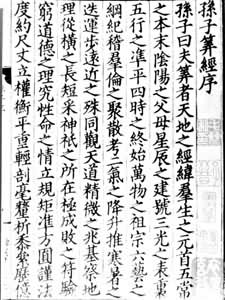 孫子筭經序
孫子曰夫筭者天地之經緯羣生之元首五常
之本末陰陽之父母星辰之建號三光之表裏
五行之準平四時之終始萬物之祖宗六藝之
綱紀稽羣倫之聚散考二氣之降升推寒暑之
迭運步遠近之殊同觀天道精微之兆基察地
理從橫之長短采神祇之所在極成敗之符驗
窮道德之理究性命之情立規矩准方圓謹法
度約尺丈立權衡平重輕剖毫釐析黍絫歷億